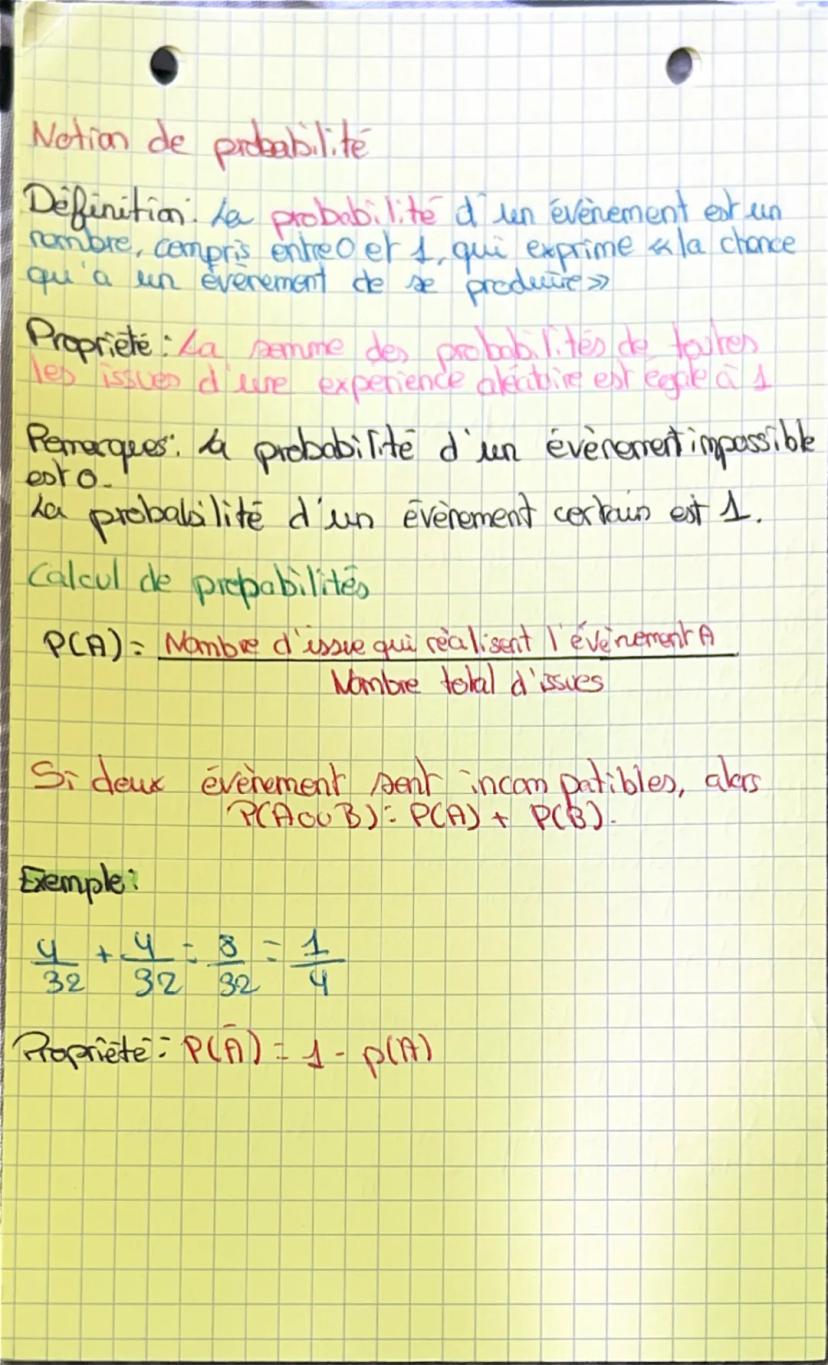 Notion de probabilité
Définition: La probabilité d'un évènement est un
nombre, compris entre 0 et 1, qui exprime « la chance
qu'a un évènement de se produire »
Propriété : La somme des probabilités de toutes
les issues d'une expérience aléatoire est égale à 1
Remarques: La probabilité d'un évènement impossible
est 0.
La probabilité d'un évènement certain est 1.
Calcul de propabilités
P(A) = Nombre d'issue qui réalisent l'évènement A
Nombre total d'issues
Si deux évènement sont incompatibles, alors
P(A ou B) = P(A) + P(B).
Exemple:
4/32 + 4/32 = 8/32 = 1/4
Propriété: P(Ā) = 1 - p(A)